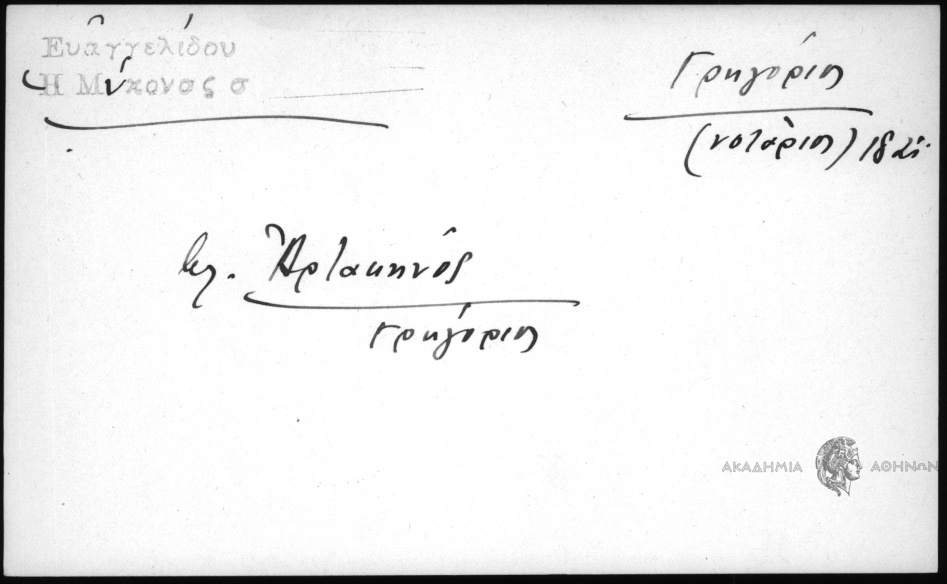 Εὐαγγελίδου
Ἡ Μύκονος σ
Γρηγόριος
(νοτάριος)
βλ. Ἀρτακηνός
Γρηγόριος
ΑΚΑΔΗΜΙΑ ΑΘΗΝΩΝ